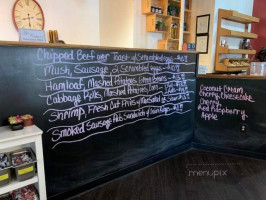 Chipped Beef over Toast w/ Scrambled Eggs
Mush, Sausage w/ Scrambled Eggs
Hamloaf, Mashed Potatoes, Green Beans
Cabbage Rolls, Mashed Potatoes, Corn
Shrimp, Fresh Cut Fries w/
Smoked Sausage Sandwich w/
Coconut Cream
Cherry Cheesecake
Cherry
Red Raspberry
Apple
menupix